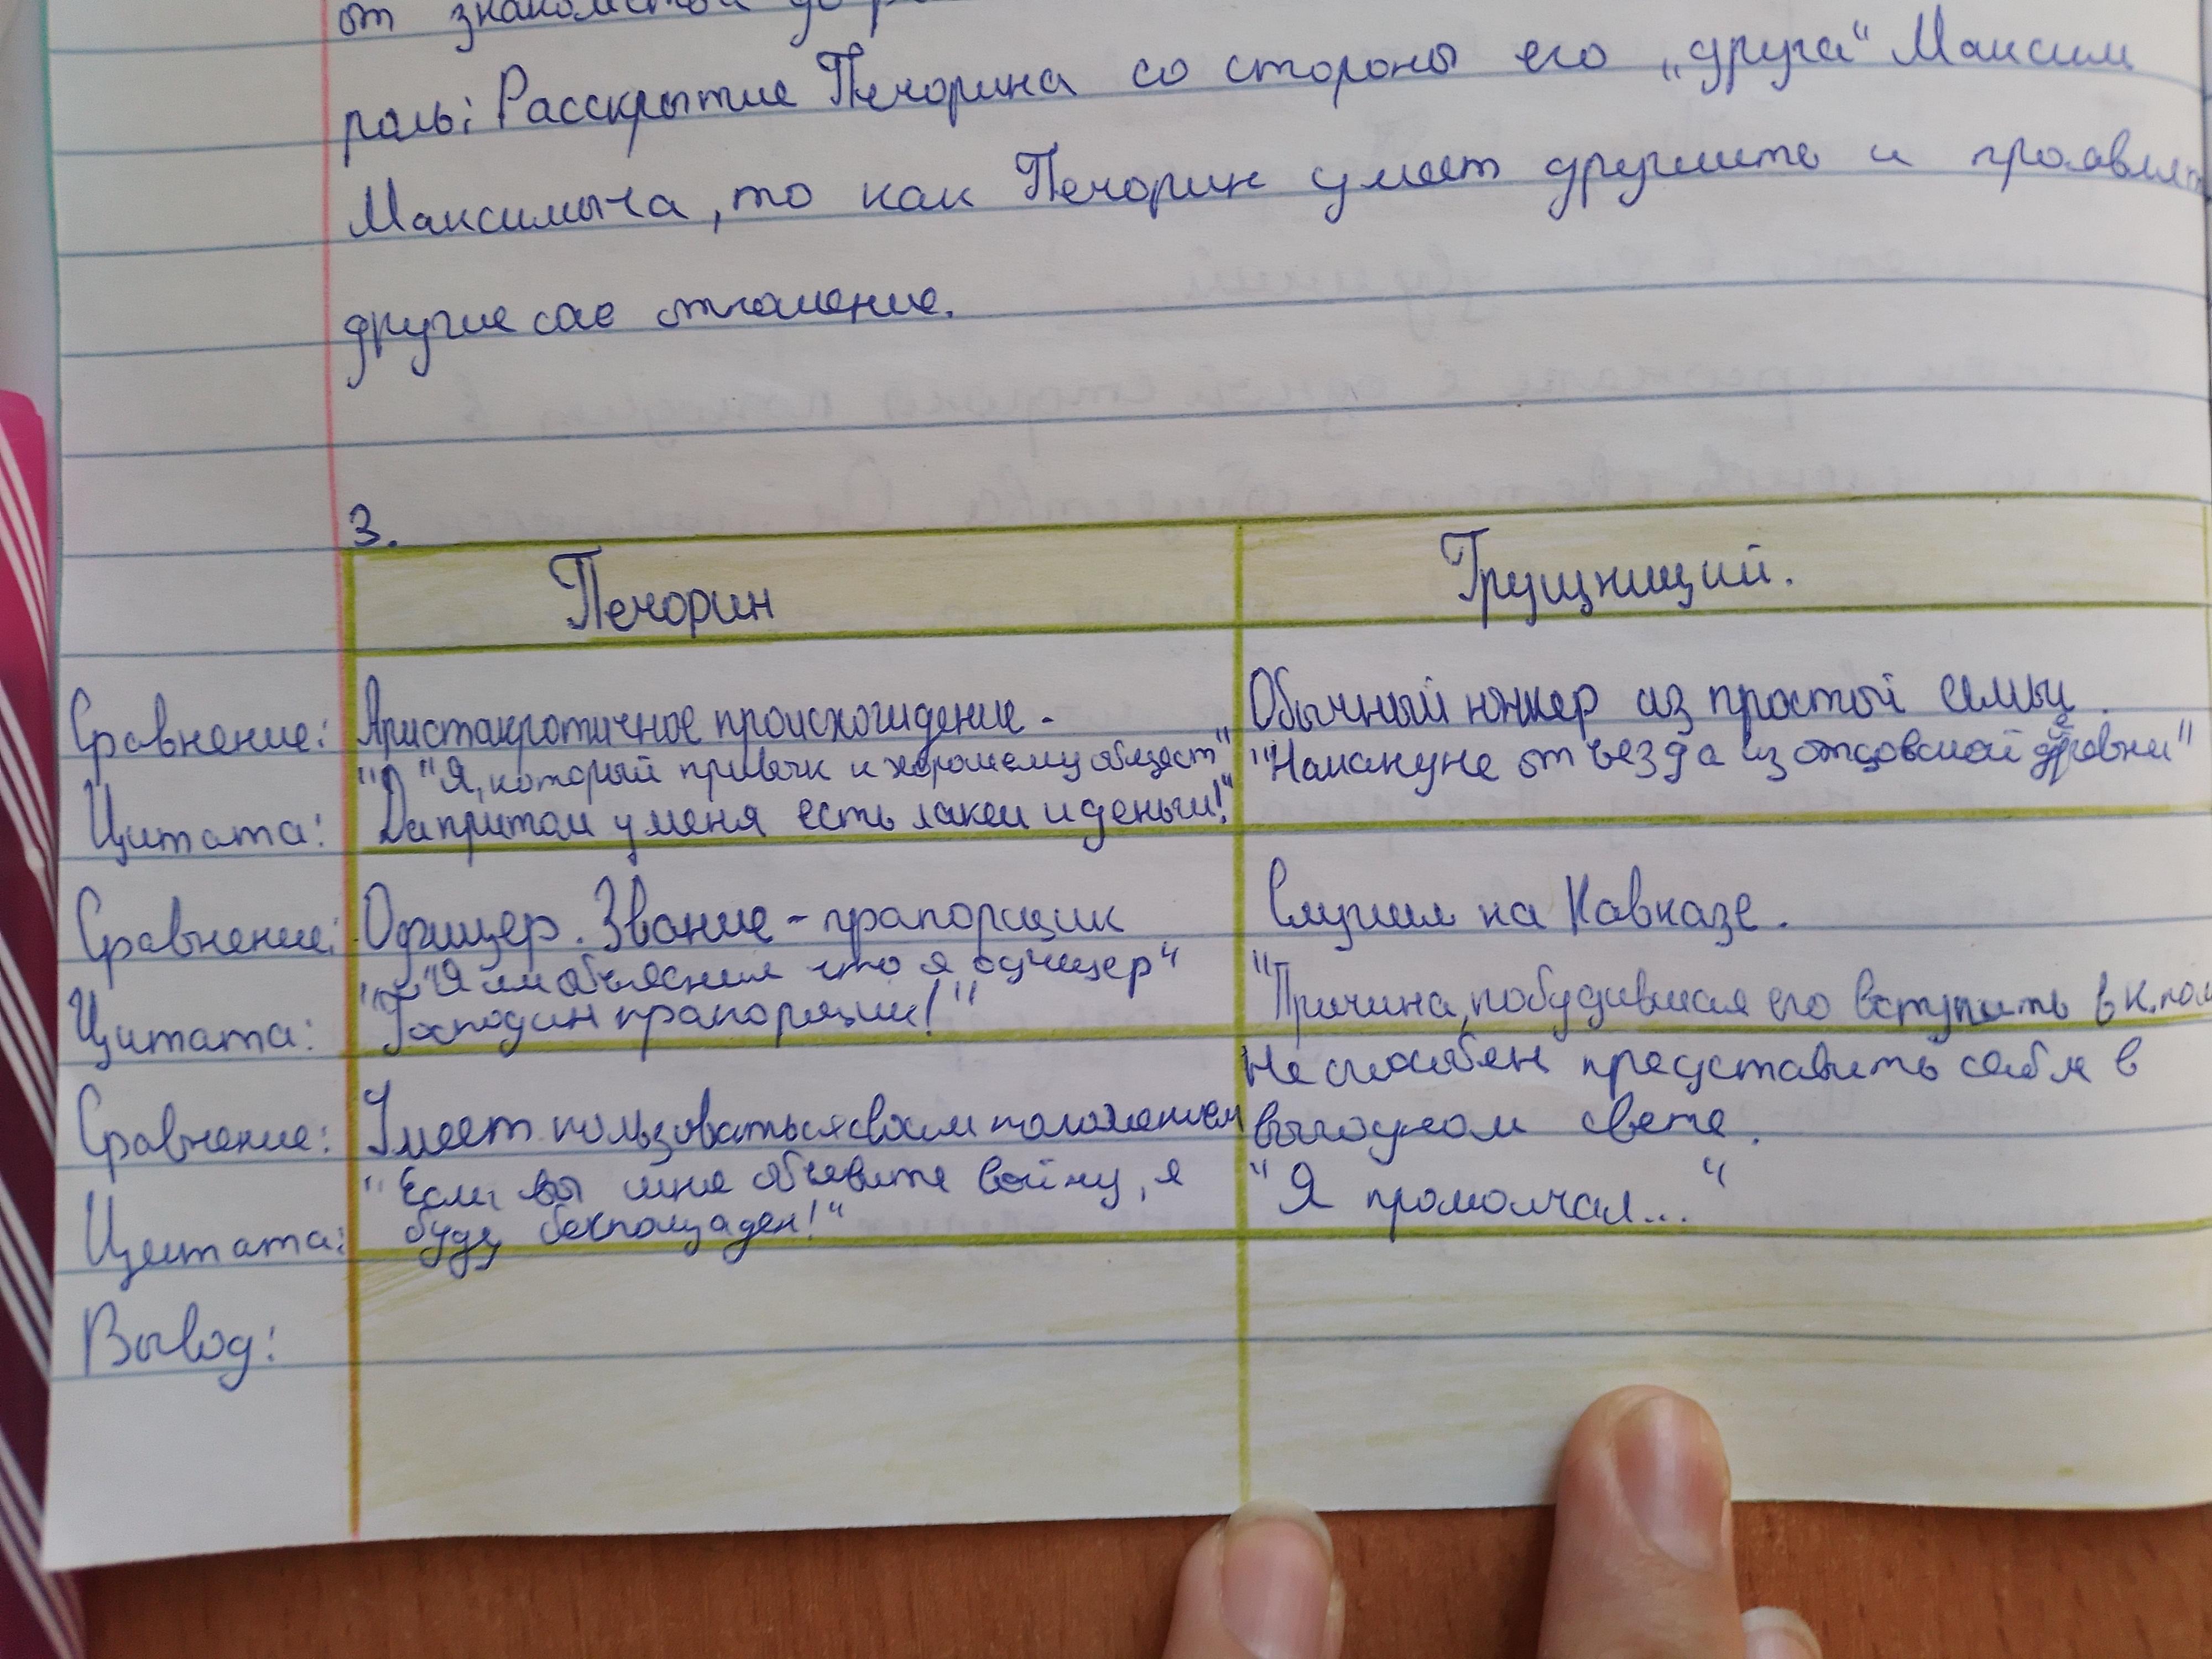 от знакомства до
роль: Расскрытие Печорина со стороны его „друга“ Максим
Максимыча, то как Печорин умеет дружить и проявлять
другие отношение.
3.
Печорин
Грущниций.
Сравнение:
Аристакротичное происхождение -
Обычный юнкер из простой семьи.
"Я, который привык к хорошему общест"
"Накануне отъезда из отцовской деревни"
Цитата:
Да притом у меня есть лакеи и деньги!"
Сравнение:
Офицер. Звание - прапорщик
Служил на Кавказе.
"Я им объяснил что я офицер"
"Причина, побудившая его вступить в к.пол
Цитата:
"Господин прапорщик!"
Не способен представить себя в
Сравнение:
Умеет пользоваться своим положением
выгодном свете.
"Если вы мне объевите войну, я
"Я промолчал..."
Цитата:
буду беспощаден!"
Вывод: